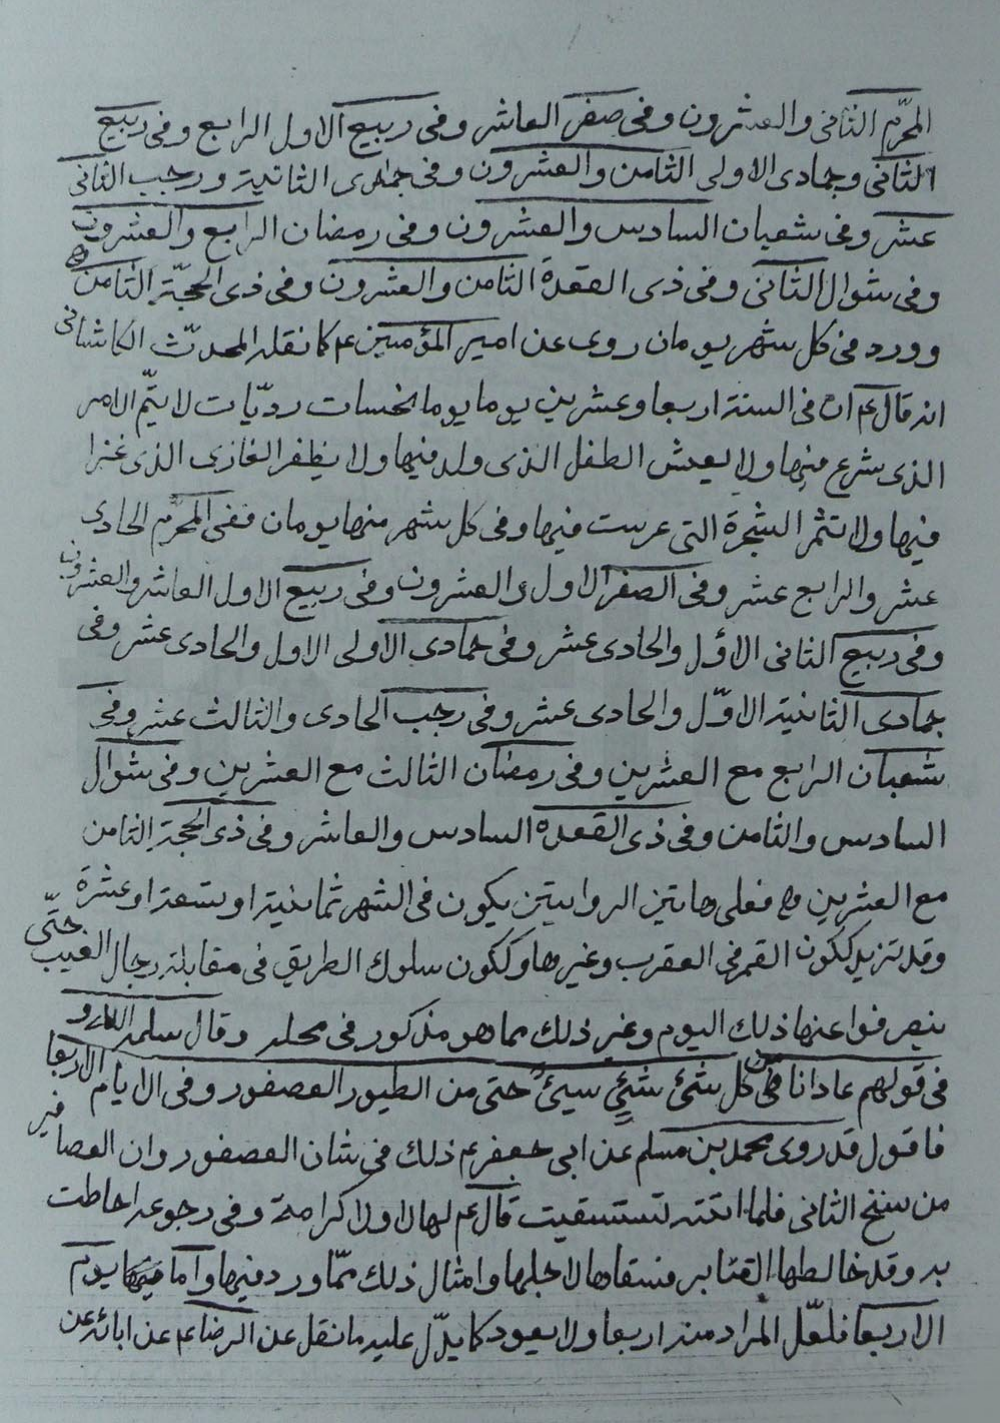 المحرّم الثانى والعشرون وفى صفر العاشر وفى ربيع الاول الرابع وفى ربيع
الثانى وجمادى الاولى الثامن والعشرون وفى جمادى الثانية ورجب الثانى
عشر وفى شعبان السادس والعشرون وفى رمضان الرابع والعشرون
وفى شوال الثانى وفى ذى القعدة الثامن والعشرون وفى ذى الحجّة الثامن
وورد فى كل شهر يومان روى عن امير المؤمنين ع كما نقله المحدّث الكاشانى
انه قال ع ان فى السنة اربعا وعشرين يوما يوما نحسات رديّات لا يتّم الامر
الذى شرع فيها ولا يعيش الطفل الذى ولد فيها ولا يظفر الغازى الذى غزا
فيها ولا تثمر الشجرة التى غرست فيها وفى كل شهر منها يومان ففى المحرّم الحادى
عشر والرابع عشر وفى الصفر الاول والعشرون وفى ربيع الاول العاشر والعشرون
وفى ربيع الثانى الاوّل والحادى عشر وفى جمادى الاولى الاول والحادى عشر وفى
جمادى الثانية الاوّل والحادى عشر وفى رجب الحادى والثالث عشر وفى
شعبان الرابع مع العشرين وفى رمضان الثالث مع العشرين وفى شوال
السادس والثامن وفى ذى القعدة السادس والعاشر وفى ذى الحجة الثامن
مع العشرين فعلى هاتين الروايتين يكون فى الشهر ثمانية او تسعة او عشرة
وقد تزيد ككون القمر فى العقرب وغيرها وككون سلوك الطريق فى مقابلة رجال الغيب حتّى
ينصرفوا عنها ذلك اليوم وغير ذلك مما هو مذكور فى محله وقال سلمه الله و
فى قولهم عادانا من كل شئ شئ سيئ حتى من الطيور العصفور وفى الايام الاربعا
فاقول قد روى محمد بن مسلم عن ابى جعفر ع ذلك فى شان العصفور وان العصافير
من سنخ الثانى فلما اتته تستسقيت قال ع لها لا ولا كرامة وفى رجوعه احاطت
به وقد خالطها القنابر فسقاها لاجلها وامثال ذلك ممّا ورد فيها واما فيها يوم
الاربعا فلعّل المراد منه اربعا ولا يعود كما يدّل عليه ما نقل عن الرضا ع عن ابائه عن